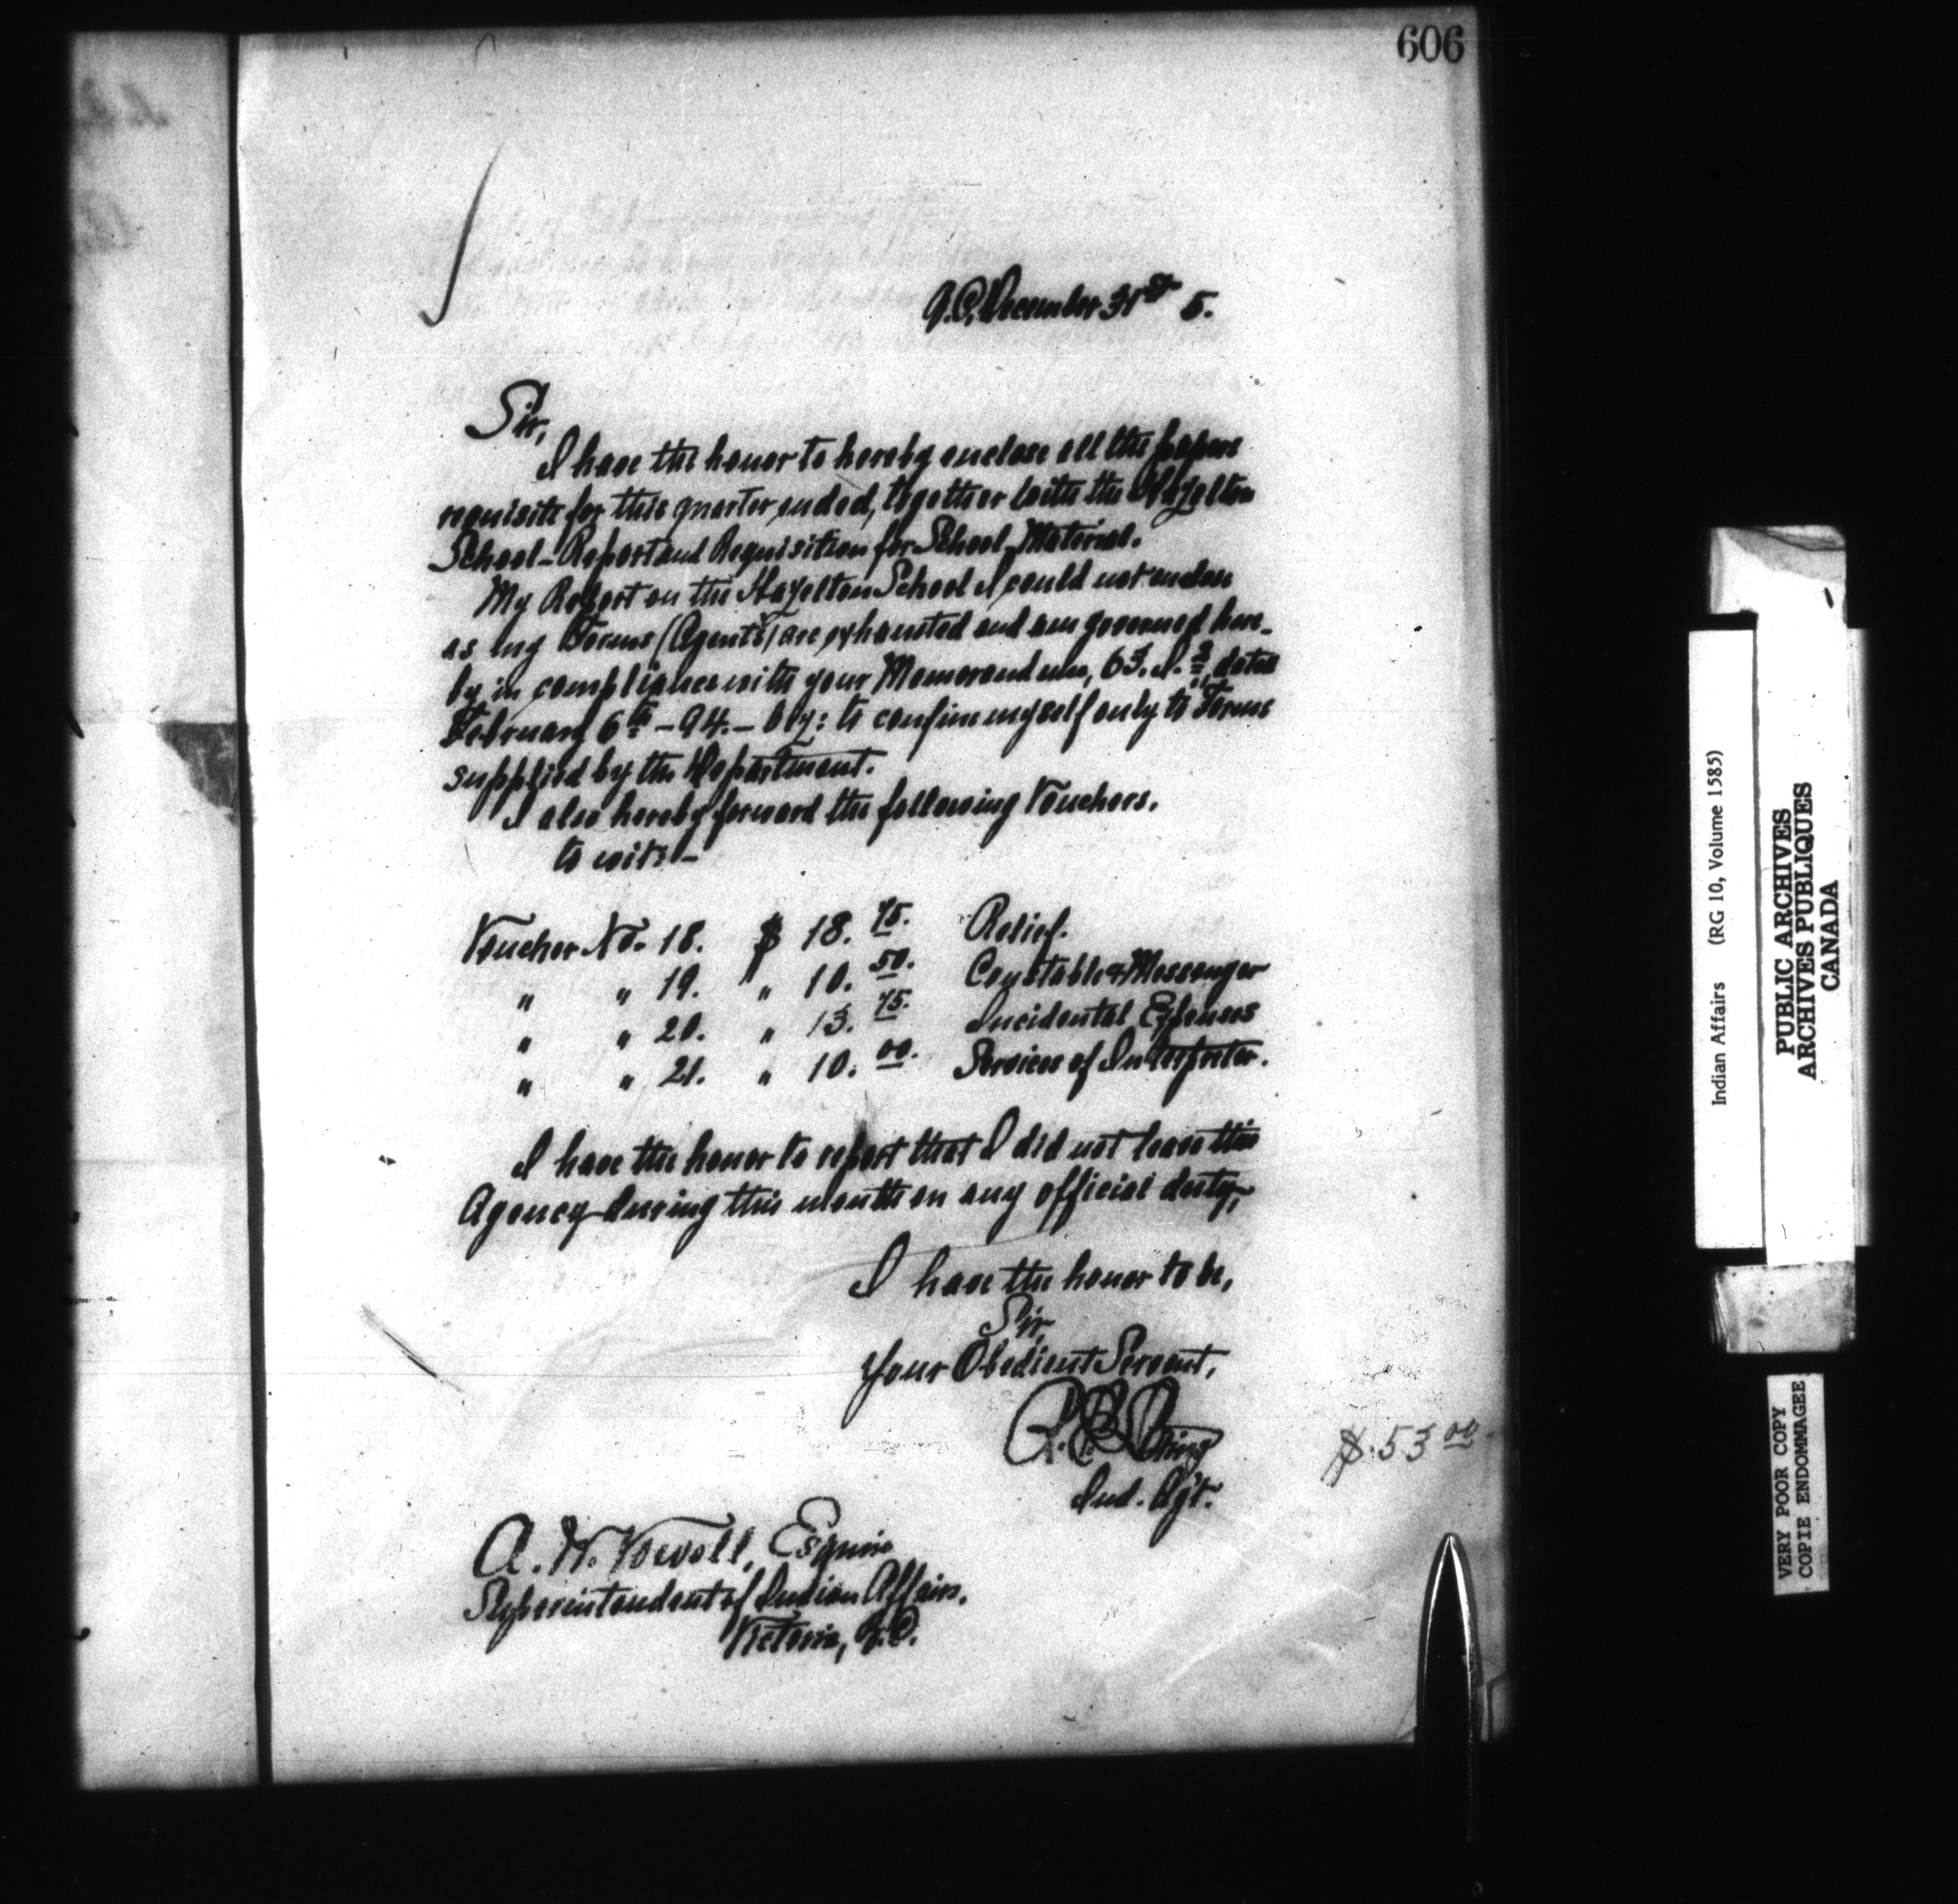 606
B.C. December 31st 5.
Sir,
I have the honor to hereby enclose all the papers
requisite for this quarter ended, together with the Hazelton
School-Report and Requisition for School-Material.
My Report on the Hazelton School I could not enclose
as my Forms (Agent's) are exhausted and am governed here-
by in compliance with your Memorandum, 63. I. 2, dated
February 6th - 94. - to confine myself only to Forms
supplied by the Department.
I also hereby forward the following Vouchers.
to wit: -
Voucher No. 18. $ 18. 75. Relief.
" " 19. " 10. 50. Constable & Messenger
" " 20. " 13. 75. Incidental Expenses
" " 21. " 10. 00. Services of Interpreter.
I have the honor to report that I did not leave this
Agency during this month on any official duty,
I have the honor to be,
Sir,
Your Obedient Servant,
R. E. Loring
Ind. Ag't.
$ 53 00
A. W. Vowell, Esquire
Superintendent of Indian Affairs,
Victoria, B.C.
Indian Affairs (RG 10, Volume 1585)
PUBLIC ARCHIVES
ARCHIVES PUBLIQUES
CANADA
VERY POOR COPY
COPIE ENDOMMAGEE